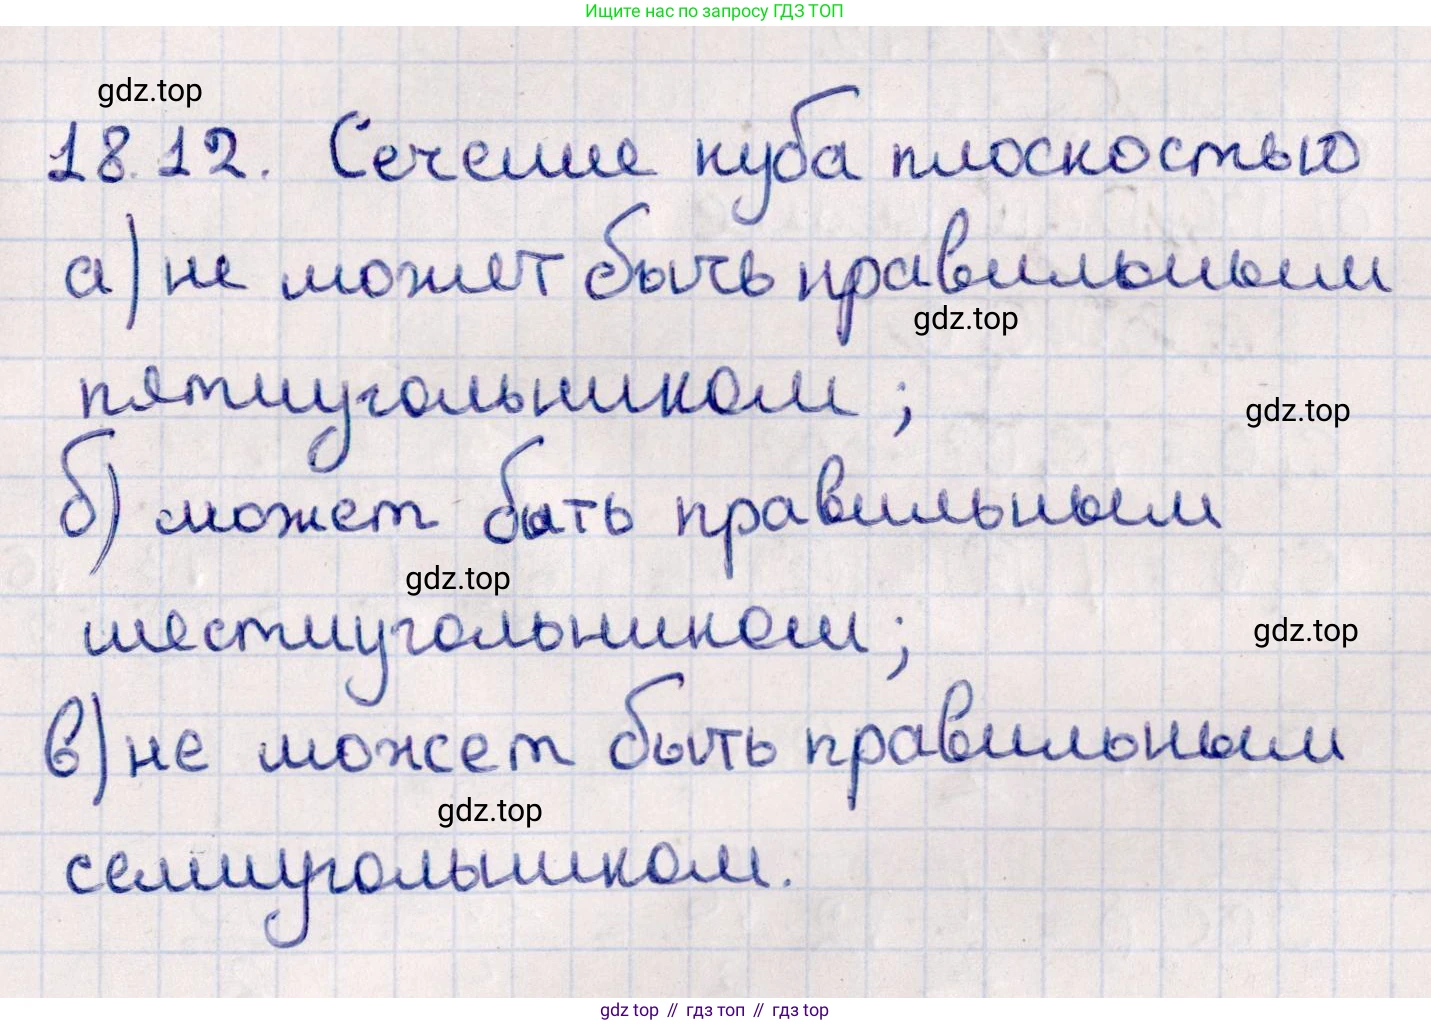 Ищите нас по запросу ГДЗ ТОП
gdz.top
18.12. Сечение куба плоскостью
а) не может быть правильным
gdz.top
пятиугольником;
gdz.top
б) может быть правильным
gdz.top
шестиугольником;
gdz.top
в) не может быть правильным
gdz.top
семиугольником.
gdz top // гдз топ // gdz top